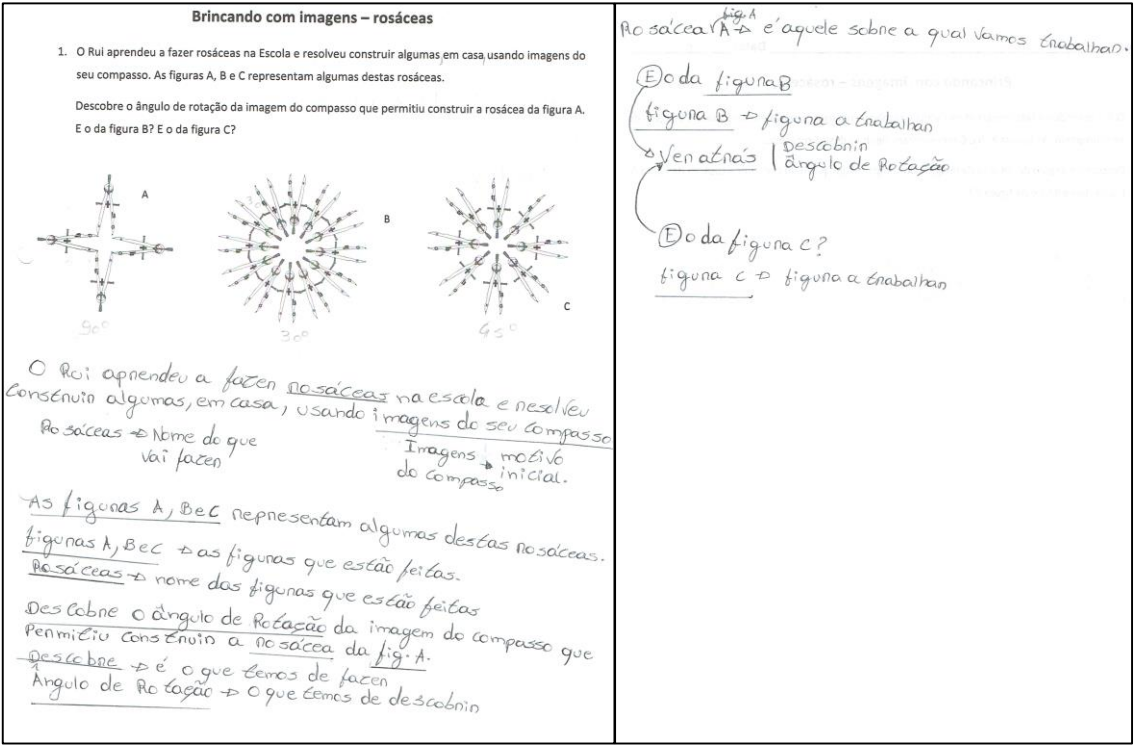 Brincando com imagens – rosáceas
1. O Rui aprendeu a fazer rosáceas na Escola e resolveu construir algumas, em casa, usando imagens do
seu compasso. As figuras A, B e C representam algumas destas rosáceas.
Descobre o ângulo de rotação da imagem do compasso que permitiu construir a rosácea da figura A.
E o da figura B? E o da figura C?
A
B
C
90º
30º
45º
O Rui aprendeu a fazer rosáceas na escola e resolveu
construir algumas, em casa, usando imagens do seu compasso
Rosáceas → Nome do que
vai fazer
Imagens → motivo
do compasso inicial.
As figuras A, B e C representam algumas destas rosáceas.
figuras A, B e C → as figuras que estão feitas.
Rosáceas → nome das figuras que estão feitas
Descobre o ângulo de Rotação da imagem do compasso que
Permitiu construir a rosácea da fig. A.
Descobre → é o que temos de fazer
Ângulo de Rotação → O que temos de descobrir
fig. A
Rosácea A → é aquele sobre a qual vamos trabalhar.
E o da figura B
figura B → figura a trabalhar
Ver atrás | Descobrir
ângulo de Rotação
E o da figura C?
figura C → figura a trabalhar